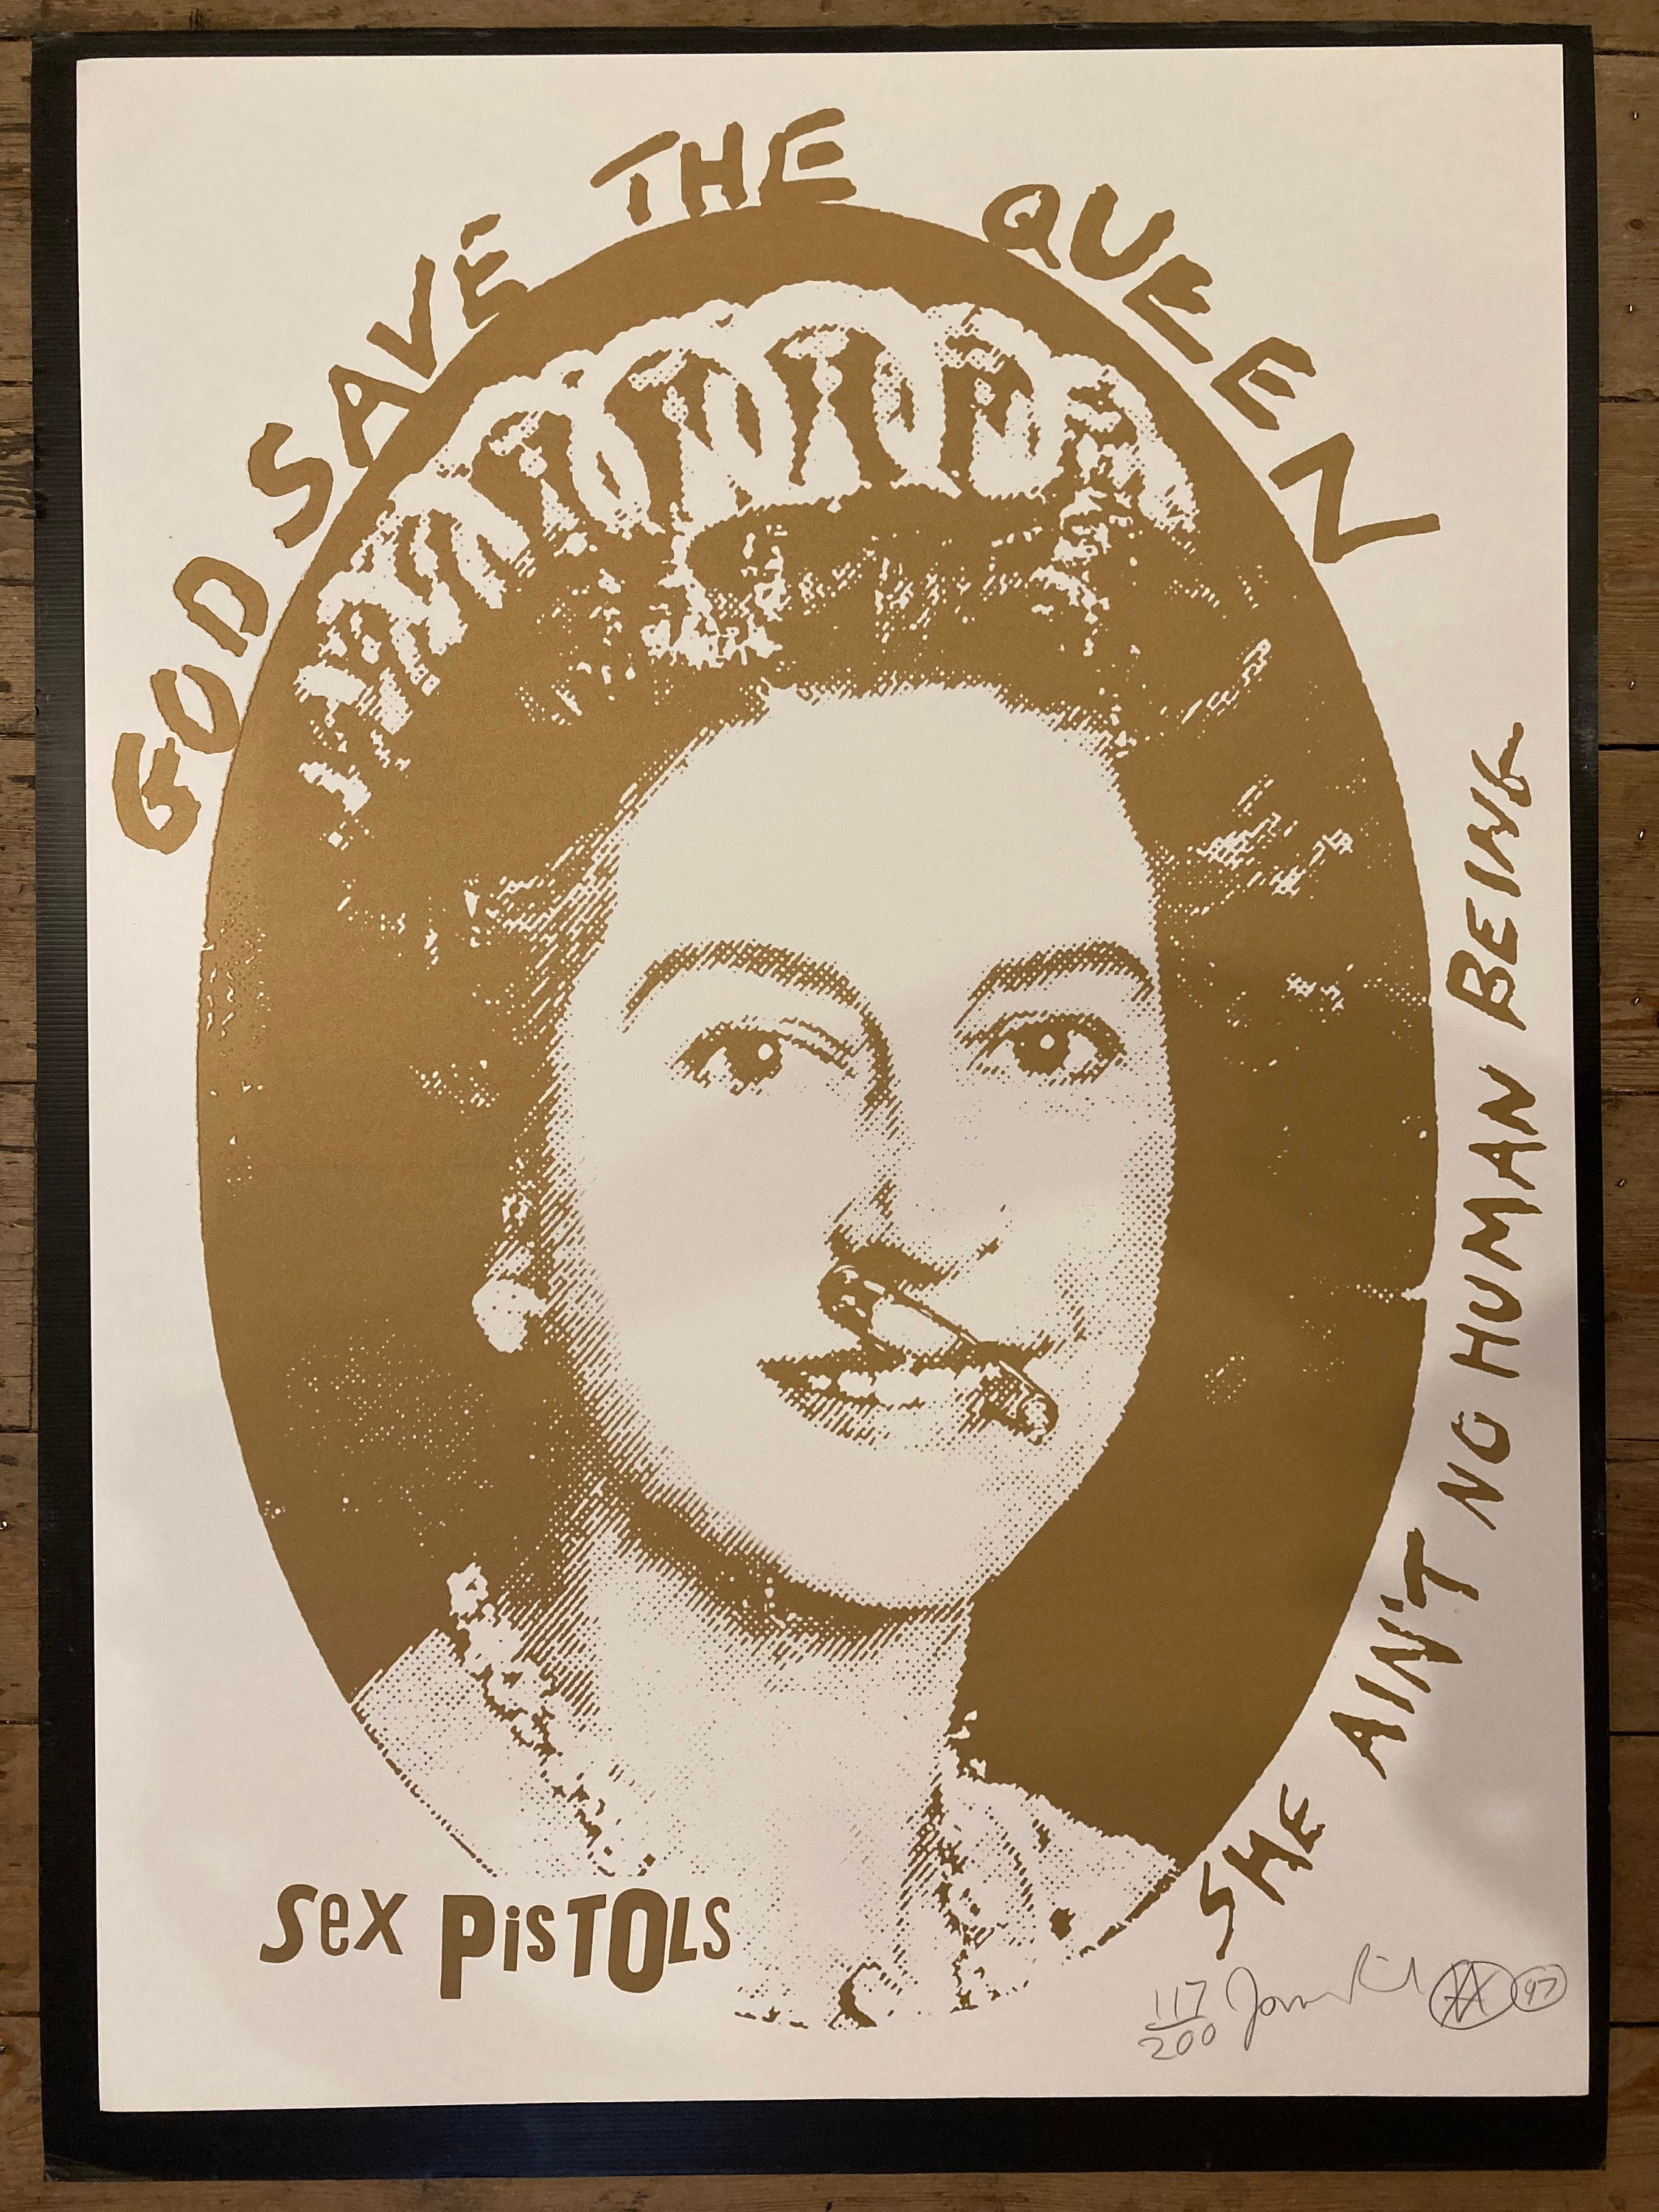 GOD SAVE THE QUEEN
SHE AIN'T NO HUMAN BEING
Sex PisTOLs
117/200
97